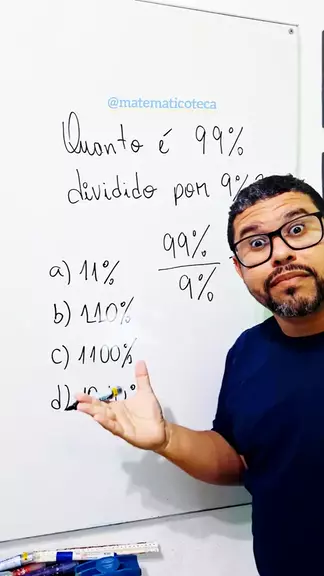 @matematicoteca
Quanto é 99%
dividido por 9%?
99%
9%
a) 11%
b) 110%
c) 1100%
d)